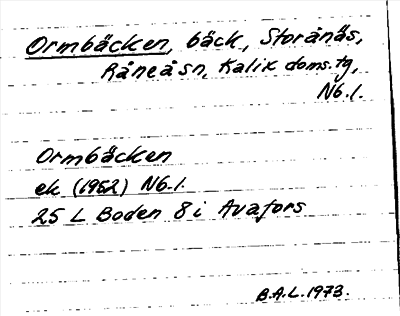 Ormbäcken, bäck, Storånäs,
Råneå sn, Kalix doms. tg,
Nb.l.
Ormbäcken
ek (1962) Nb.l.
25 L Boden 8 i Avafors
B.A.L. 1973.